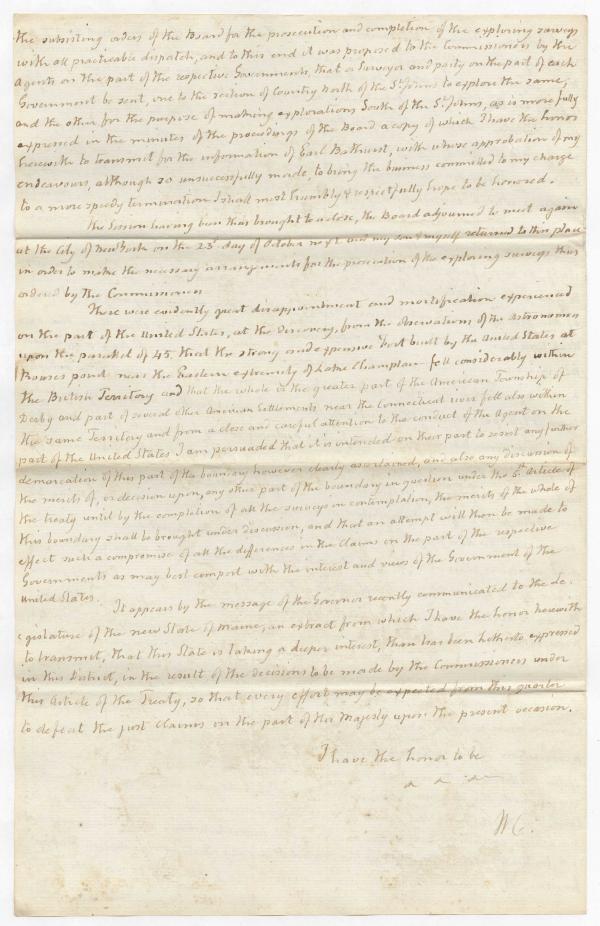 the subsisting orders of the Board for the prosecution and completion of the exploring surveys
with all practicable dispatch, and to this end it was proposed to the Commissioners by the
Agents on the part of the respective Governments, that a Surveyor and party on the part of each
Government be sent, one to the section of Country North of the St Johns to explore the same,
and the other for the purpose of making explorations South of the St Johns, as is more fully
expressed in the minutes of the proceedings of the Board a copy of which I have the honor
herewith to transmit for the information of Earl Bathurst, with whose approbation of my
endeavours, although so unsuccessfully made, to bring the business committed to my charge
to a more speedy termination I shall most humbly & respectfully hope to be honored.
The Session having been thus brought to a close, the Board adjourned to meet again
at the City of New York on the 23d day of October next and my son & myself returned to this place
in order to make the necessary arrangements for the prosecution of the exploring surveys thus
ordered by the Commissioners
There were evidently great disappointment and mortification experienced
on the part of the United States, at the discovery, from the observations of the Astronomers
upon the parallel of 45, that the strong and expensive Fort built by the United States at
Rouses point near the Eastern extremity of Lake Champlain fell considerably within
the British Territory and that the whole or the greater part of the American Township of
Derby and part of several other American Settlements near the Connecticut river fell also within
the same Territory and from a close and careful attention to the conduct of the Agent on the
part of the United States I am persuaded that it is intended on their part to resist any further
demarcation of this part of the boundary however clearly ascertained, and also any discussion of
the merits of, or decision upon, any other part of the boundary in question under the 5th Article of
the treaty until by the completion of all the surveys in contemplation, the merits of the whole of
this boundary shall be brought under discussion, and that an attempt will then be made to
effect such a compromise of all the differences in the claims on the part of the respective
Governments as may best comport with the interest and views of the Government of the
United States.
It appears by the message of the Governor recently communicated to the Le-
gislature of the new State of Maine, an extract from which I have the honor herewith
to transmit, that this State is taking a deeper interest, than has been hetherto expressed
in this District, in the result of the decisions to be made by the Commissioners under
this Article of the Treaty, so that every effort may be expected from this quarter
to defeat the just Claims on the part of His Majesty upon the present occasion.
I have the honor to be
W C.